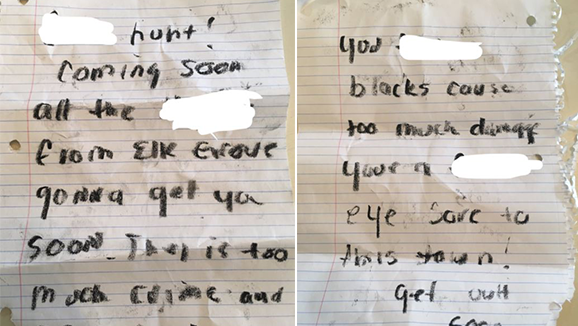 hunt!
Coming soon
all the
from Elk Grove
gonna get ya
soon. Ther is too
much crime and
you
blacks cause
too much damage
your a
eye sore to
this town!
get out
soon